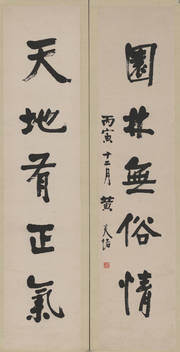 園林無俗情
丙寅十二月 黃炎培
天地有正氣